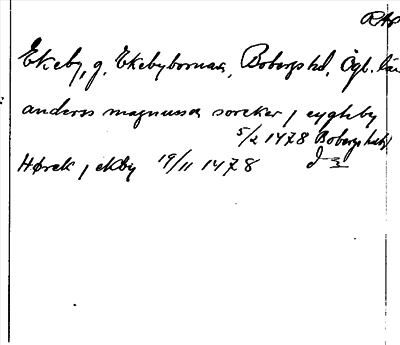 RAp
Ekeby, g. Ekebyborna sn, Bobergs hd, Ögl. län
anderss magnussa soreker j eygheby
5/2 1478 Bobergs hd
Hørek j ekby 19/11 1478 d 3